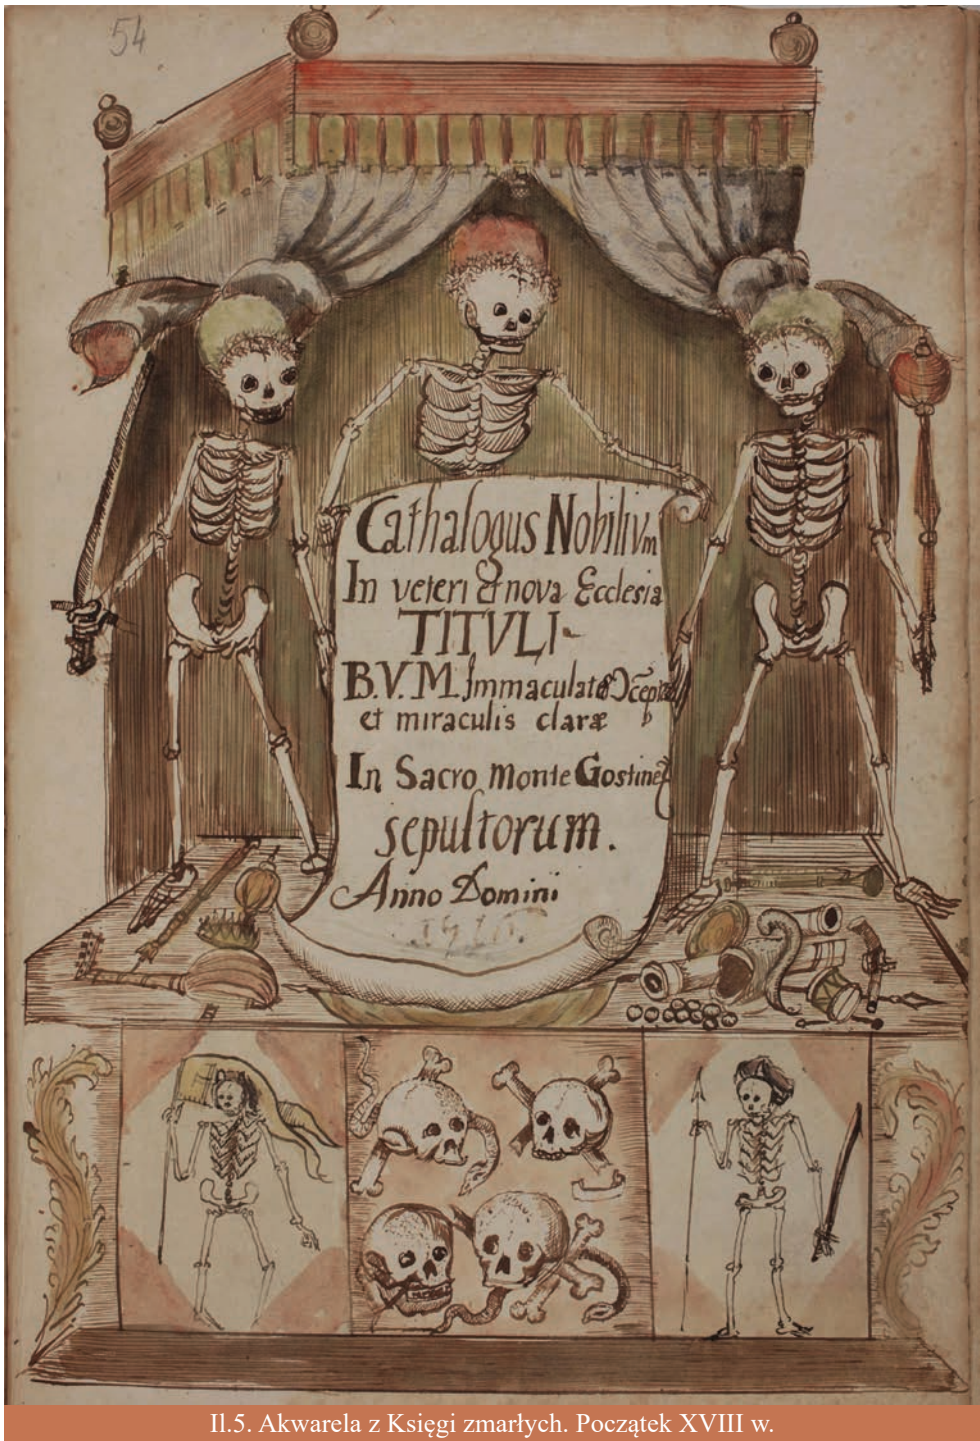 54
Cathalogus Nobiliũm
In veteri et nova Ecclesia
TITVLI
B.V.M. Immaculatæ
et miraculis claræ
In Sacro Monte Gostine
sepultorum.
Anno Domini
Il.5. Akwarela z Księgi zmarłych. Początek XVIII w.